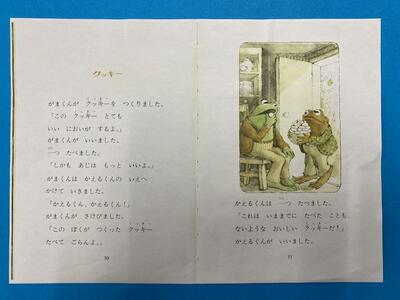 クッキー
がまくんが クッキーを つくりました。
「この クッキー とても
いい においが するよ。」
がまくんが いいました。
一つ たべました。
「しかも あじは もっと いいよ。」
がまくんは かえるくんの いえへ
かけて いきました。
「かえるくん、かえるくん!」
がまくんが さけびました。
「この ぼくが つくった クッキー
たべて ごらんよ。」
30
かえるくんは 一つ たべました。
「これは いままでに たべた ことも
ないような おいしい クッキーだ!」
かえるくんが いいました。
31